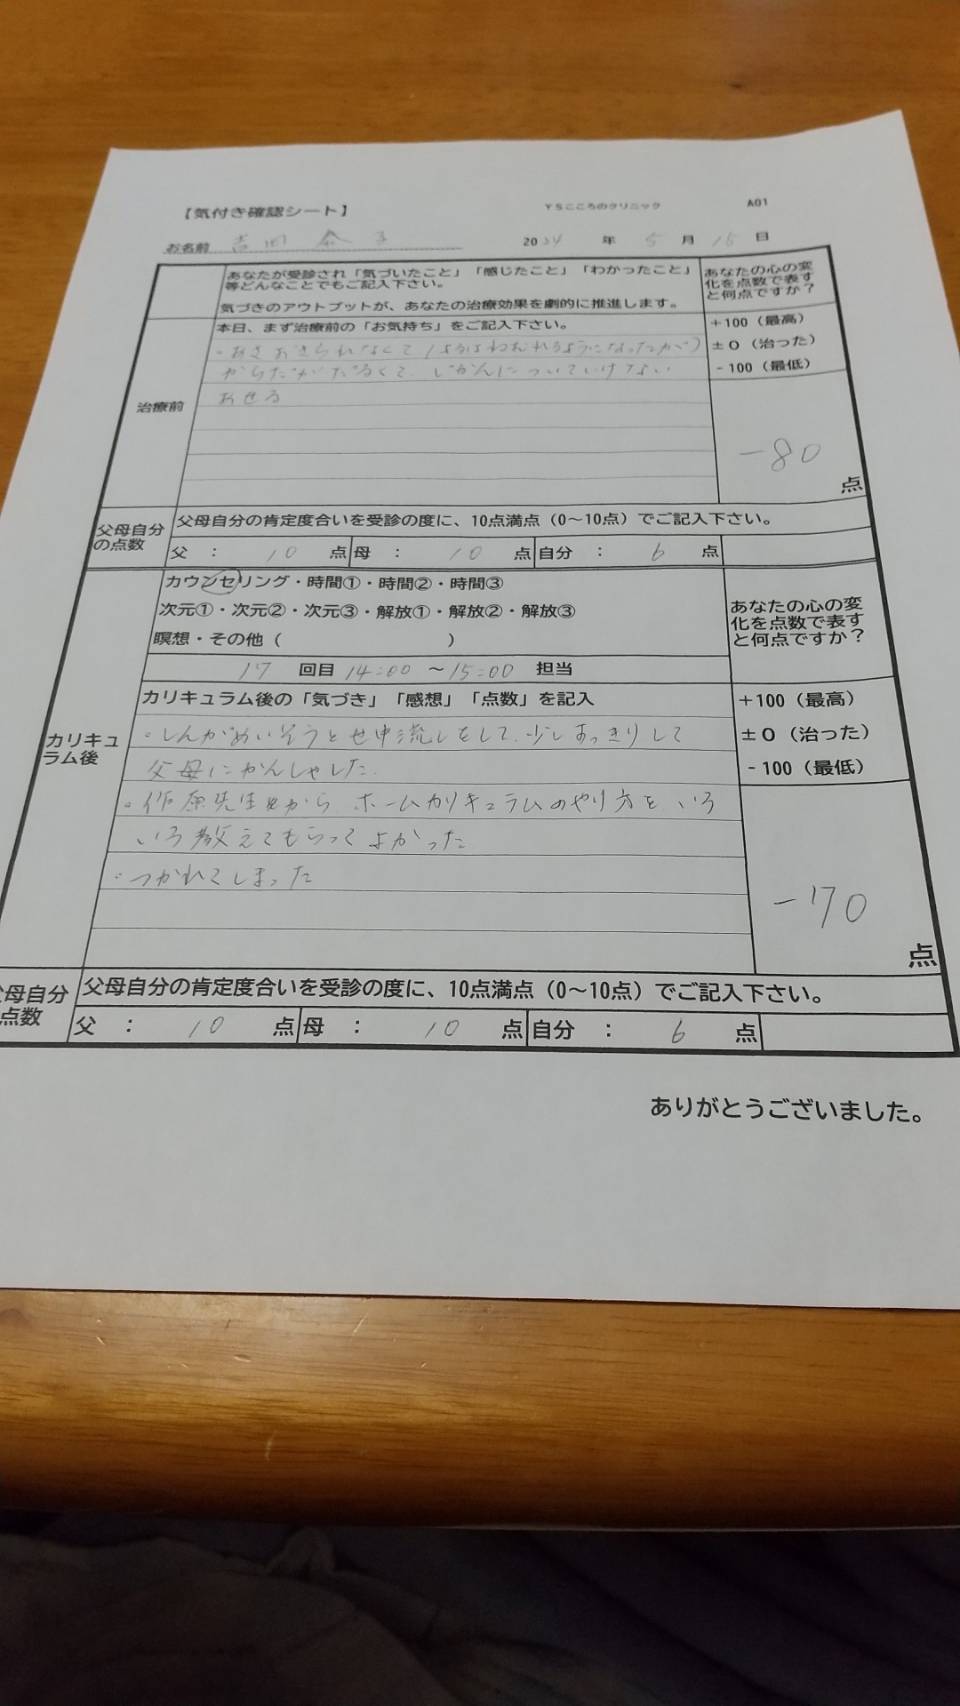 【気付き確認シート】 YSこころのクリニック A01
お名前 吉田 2024 年 5 月 15 日
あなたが受診され「気づいたこと」「感じたこと」「わかったこと」
等どんなことでもご記入下さい。
気づきのアウトプットが、あなたの治療効果を劇的に推進します。
あなたの心の変
化を点数で表す
と何点ですか？
治療前
本日、まず治療前の「お気持ち」をご記入下さい。
・あさおきられなくて(よるはねむれるようになったが)
からだがだるくて、じかんについていけない
あせる
+100（最高）
±0（治った）
-100（最低）
-80
点
父母自分
の点数
父母自分の肯定度合いを受診の度に、10点満点（0〜10点）でご記入下さい。
父 ： 10 点 母 ： 10 点 自分 ： 6 点
カリキュ
ラム後
カウンセリング・時間①・時間②・時間③
次元①・次元②・次元③・解放①・解放②・解放③
瞑想・その他（ ）
17 回目 14:00 〜15:00 担当
あなたの心の変
化を点数で表す
と何点ですか？
カリキュラム後の「気づき」「感想」「点数」を記入
・しんがめいそうとせ中流しをして、少しすっきりして
父母にかんしゃした。
・作原先生から、ホームカリキュラムのやり方をいろ
いろ教えてもらってよかった
・つかれてしまった
+100（最高）
±0（治った）
-100（最低）
-70
点
父母自分
点数
父母自分の肯定度合いを受診の度に、10点満点（0〜10点）でご記入下さい。
父 ： 10 点 母 ： 10 点 自分 ： 6 点
ありがとうございました。